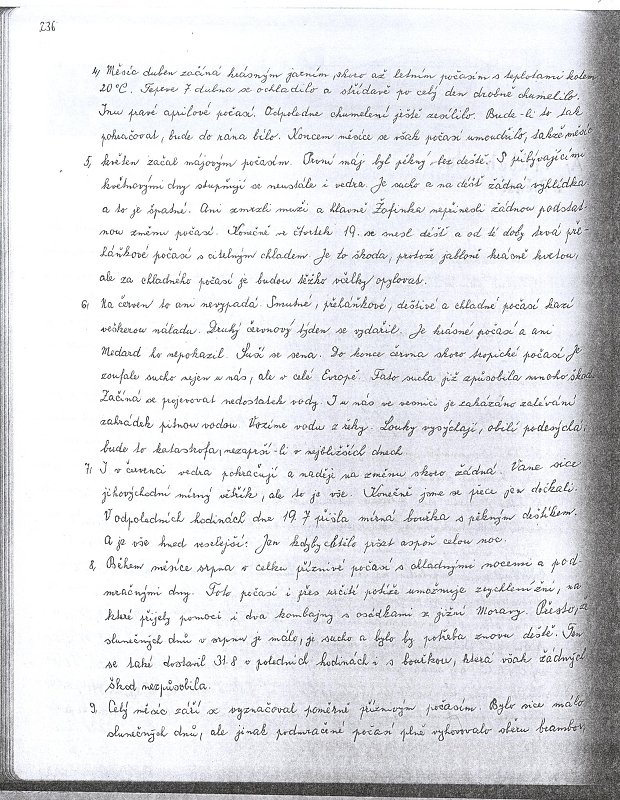 236
4, Měsíc duben začíná krásným jarním, skoro až letním počasím s teplotami kolem
20°C. Teprve 7 dubna se ochladilo a střídavě po celý den drobně chumelilo.
Inu pravé aprílové počasí. Odpoledne chumelení ještě zesílilo. Bude-li to tak
pokračovat, bude do rána bílo. Koncem měsíce se však počasí umoudřilo, takže měsíc
5, květen začal májovým počasím. První máj byl pěkný bez deště. S přibývajícími
květnovými dny stupňují se neustále i vedra. Je sucho a na déšť žádná vyhlídka
a to je špatné. Ani zmrzlí muži a hlavně Žofinka nepřinesli žádnou podstat-
nou změnu počasí. Konečně ve čtvrtek 19. se snesl déšť a od té doby trvá pře-
háňkové počasí s citelným chladem. Je to škoda, protože jabloně krásně kvetou,
ale za chladného počasí je budou těžko včelky opylovat.
6, Na červen to ani nevypadá. Smutné, přeháňkové, deštivé a chladné počasí kazí
veškerou náladu. Druhý červnový týden se vydařil. Je krásné počasí a ani
Medard ho nepokazil. Suší se sena. Do konce června skoro tropické počasí. Je
zoufale sucho nejen u nás, ale v celé Evropě. Tato sucha již způsobila mnoho škod.
Začíná se projevovat nedostatek vody. I u nás ve vesnici je zakázáno zalévání
zahrádek pitnou vodou. Vozíme vodu z řeky. Louky vysýchají, obilí podesýchá,
bude to katastrofa, nezaprší-li v nejbližších dnech.
7, I v červenci vedra pokračují a naději na změnu skoro žádná. Vane sice
jihovýchodní mírný větřík, ale to je vše. Konečně jsme se přece jen dočkali.
V odpoledních hodinách dne 19.7 přišla mírná bouřka s pěkným deštíkem.
A je vše hned veselejší. Jen kdyby chtělo pršet aspoň celou noc.
8, Během měsíce srpna v celku příznivé počasí s chladnými nocemi a pod
mračnými dny. Toto počasí i přes určité potíže umožňuje zrychlení žní, na
které přijely pomoci i dva kombajny s osádkami z jižní Moravy. Přesto, že
slunečných dnů v srpnu je málo, je sucho a bylo by potřeba znovu deště. Ten
se také dostavil 31.8 v poledních hodinách i s bouřkou, která však žádných
škod nezpůsobila.
9. Celý měsíc září se vyznačoval poměrně příznivým počasím. Bylo sice málo
slunečných dnů, ale jinak podmračené počasí plně vyhovovalo sběru brambor,